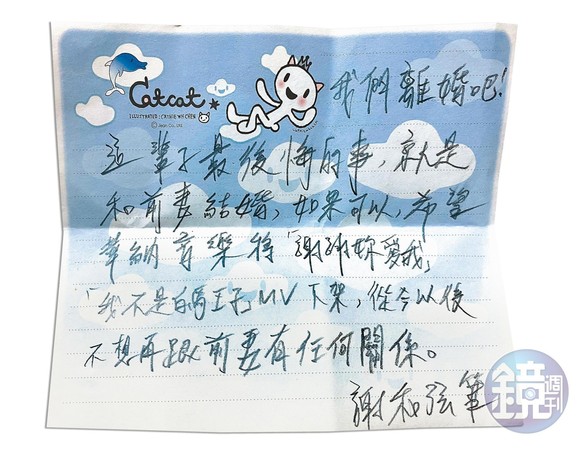 我們離婚吧!
Catcat
這輩子最後悔的事，就是
和前妻結婚，如果可以，希望
華納音樂將「謝謝妳愛我」
「我不是白馬王子」MV 下架，從今以後
不想再跟前妻有任何關係。
謝和弦筆
鏡週刊